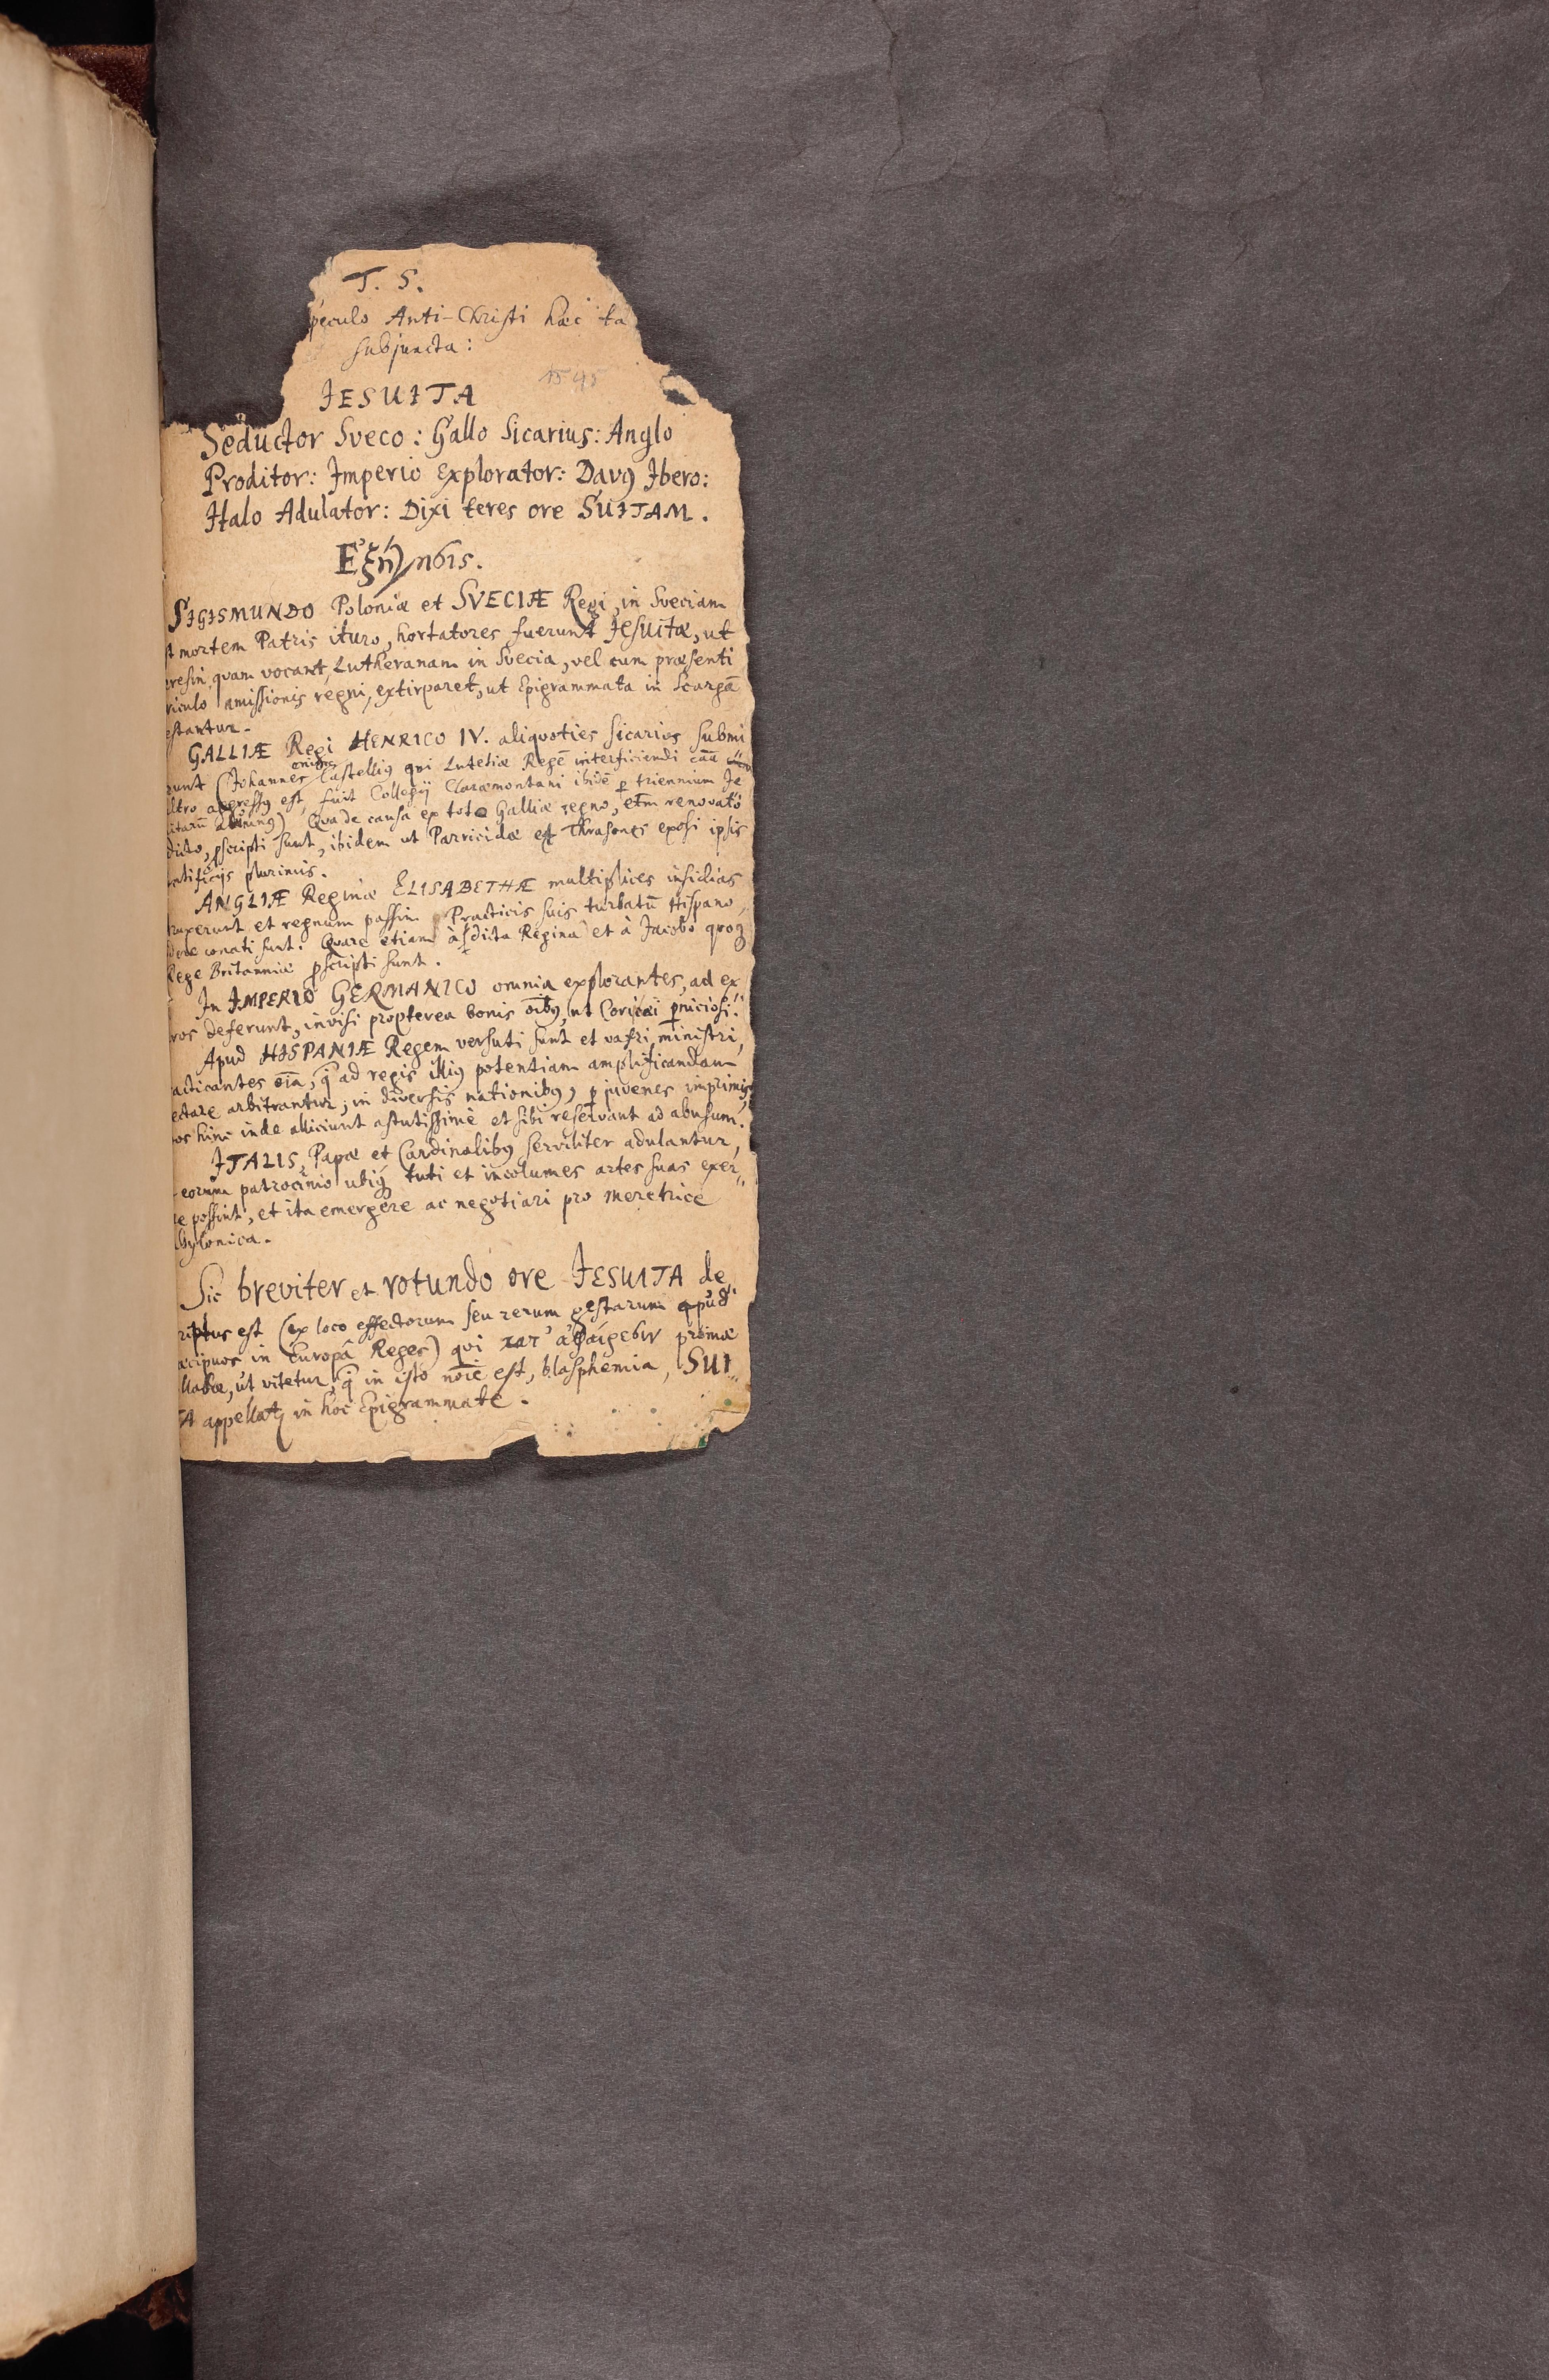 T. S.
peculo Anti-Christi hæc ta
subjuncta:
1595
JESUITA
Seductor Sveco: Gallo Sicarius: Anglo
Proditor: Imperio Explorator: Davꝯ Ibero:
Italo Adulator: Dixi teres ore SUITAM.
Ἐξήγησις.
SIGISMUNDO Poloniæ et SVECIÆ Regi, in Sveciam
st mortem Patris ituro, hortatores fuerunt Jesuitæ, ut
eresin, quam vocant, Lutheranam in Svecia, vel cum præsenti
riculo amissionis regni, extirparet, ut Epigrammata in Scargā
estantur.
GALLIÆ Regi HENRICO IV. aliquoties sicarios submi
runt (Johannes Castelliꝯ qvi Lutetiæ Regē interficiendi cāā
ultro aggressꝯ est, fuit Collegij Claræmontani ibidē ꝑ triennium Je
litarū alumnꝯ). Qva de causa ex toto Galliæ regno, etm̄ renovato
dicto, ꝓscripti sunt, ibidem ut Parricidæ et Thrasones exosi ipsis
ntificijs plurimis.
ANGLIÆ Reginæ ELISABETHÆ multiplices insidias
truxerunt et regnum passim Practicis suis turbatū Hispano,
dere conati sunt. Qvare etiam à dicta Regina et à Jacobo qvoqꝫ
Rege Britanniæ ꝓscripti sunt.
In IMPERIO GERMANICO omnia explorantes, ad ex
ros deferunt, invisi propterea bonis oībꝯ, ut Corycæi ꝑniciosi.
Apud HISPANIÆ Regem versuti sunt et vafri ministri,
acticantes oīa, q̄ ad regis illiꝯ potentiam amplificandam
ectare arbitrantur, in diversis nationibꝯ, ꝑ juvenes imprimis,
os hinc inde alliciunt astutissimè et sibi reservant ad abusum.
ITALIS, Papæ et Cardinalibꝯ serviliter adulantur,
eorum patrocinio ubiq́ tuti et incolumes artes suas exer
re possint, et ita emergere ac negotiari pro meretrice
bylonica.
Sic breviter et rotundo ore JESUITA de
riptus est (ex loco effectorum seu rerum gestarum apud
æcipuos in Europâ Reges) qvi κατ' ἀφαίρεσιν primæ
llabæ, ut vitetur, q̄ in isto nōīe est, blasphemia, SUI
TA appellatꝫ in hoc Epigrammate.